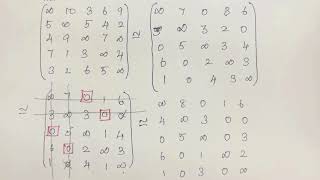 ∞ 10 3 6 9
5 ∞ 5 4 2
4 9 ∞ 7 ∞
7 1 3 ∞ 4
3 2 6 5 ∞
~ ∞ 7 0 8 6
∞ 3 2 0
0 5 ∞ 3 4
6 0 2 ∞ 3
1 0 4 3 ∞
~ ∞ 7 0 1 6
3 ∞ 3 0
0 ∞ 1 4
0 2 ∞ 3
1 4 1 ∞
~ ∞ 8 0 1 6
4 ∞ 3 0 0
0 5 ∞ 0 3
6 0 1 ∞ 2
1 0 3 0 ∞